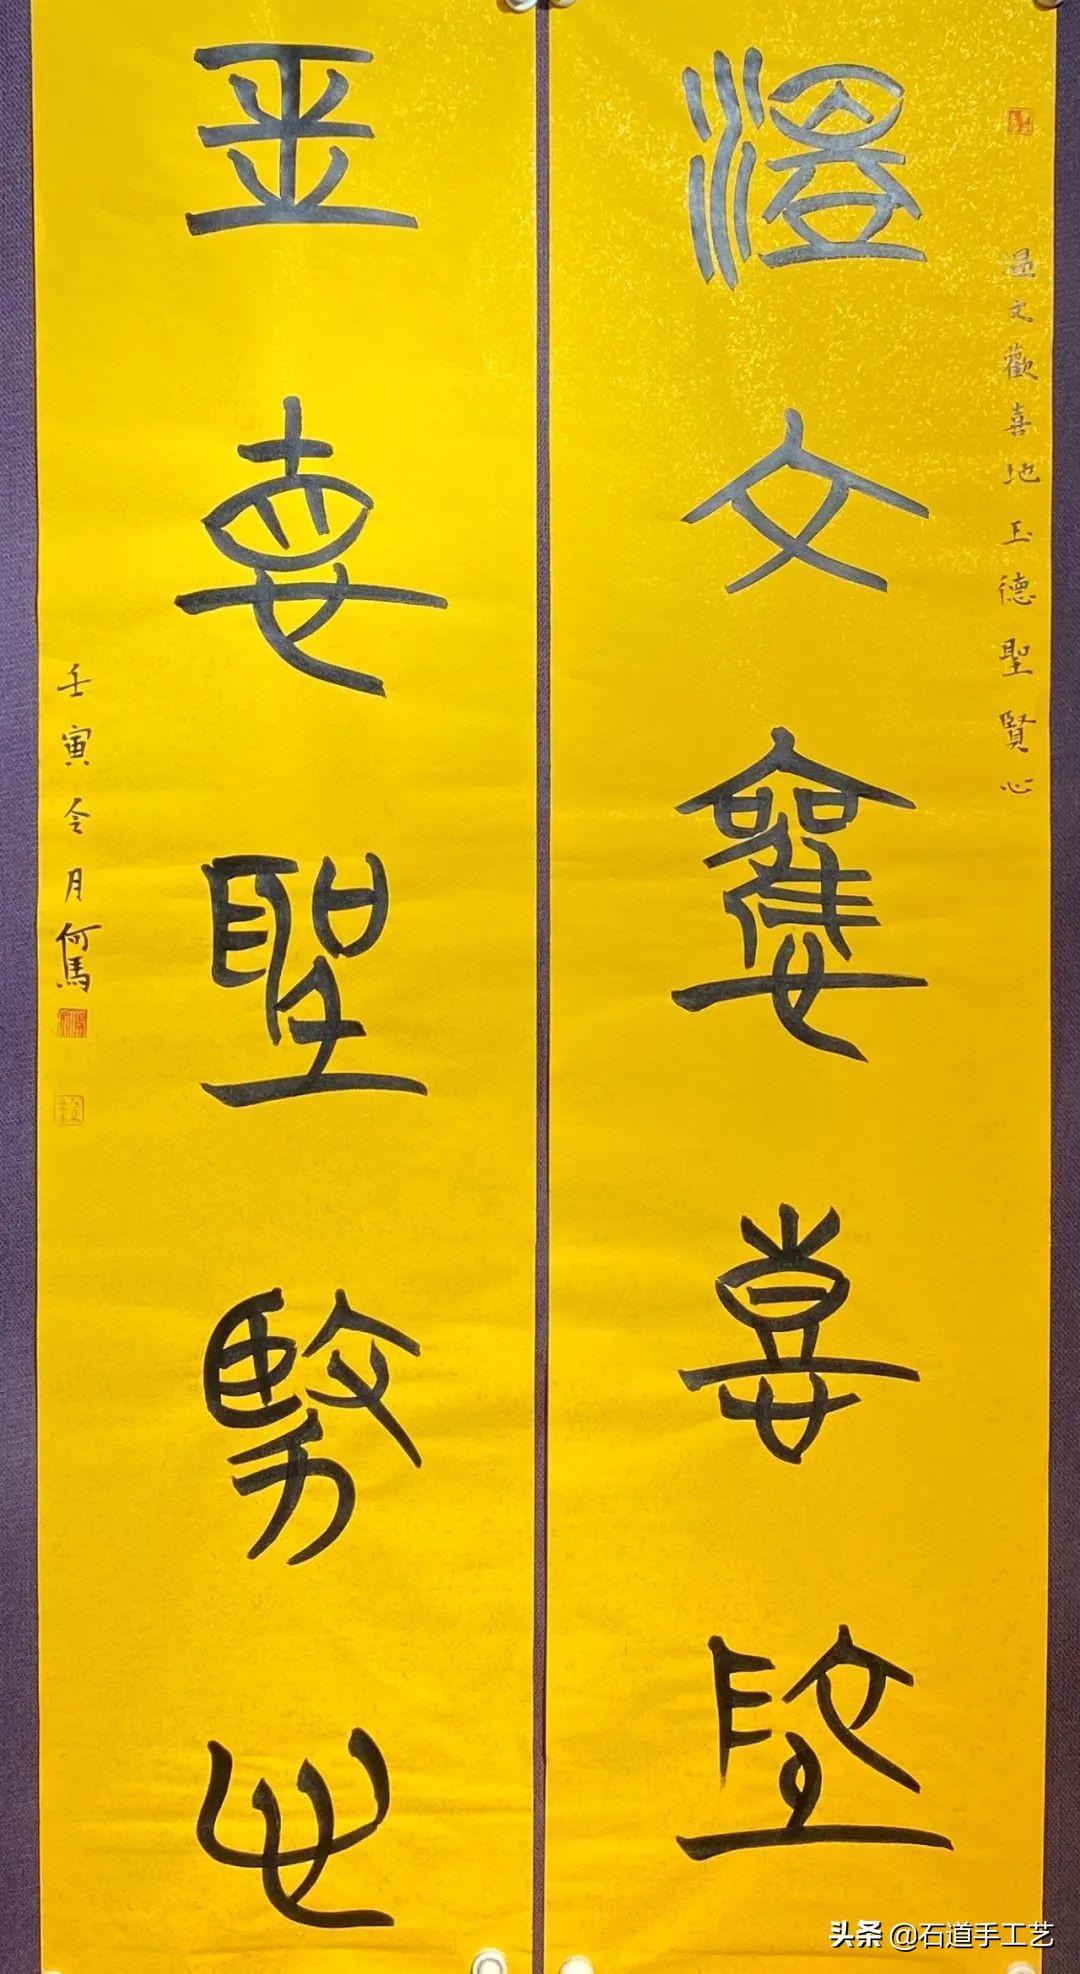 温文歡喜地
玉德聖賢心
温文歡喜地玉德聖賢心
壬寅令月何馬
头条 @石道手工艺